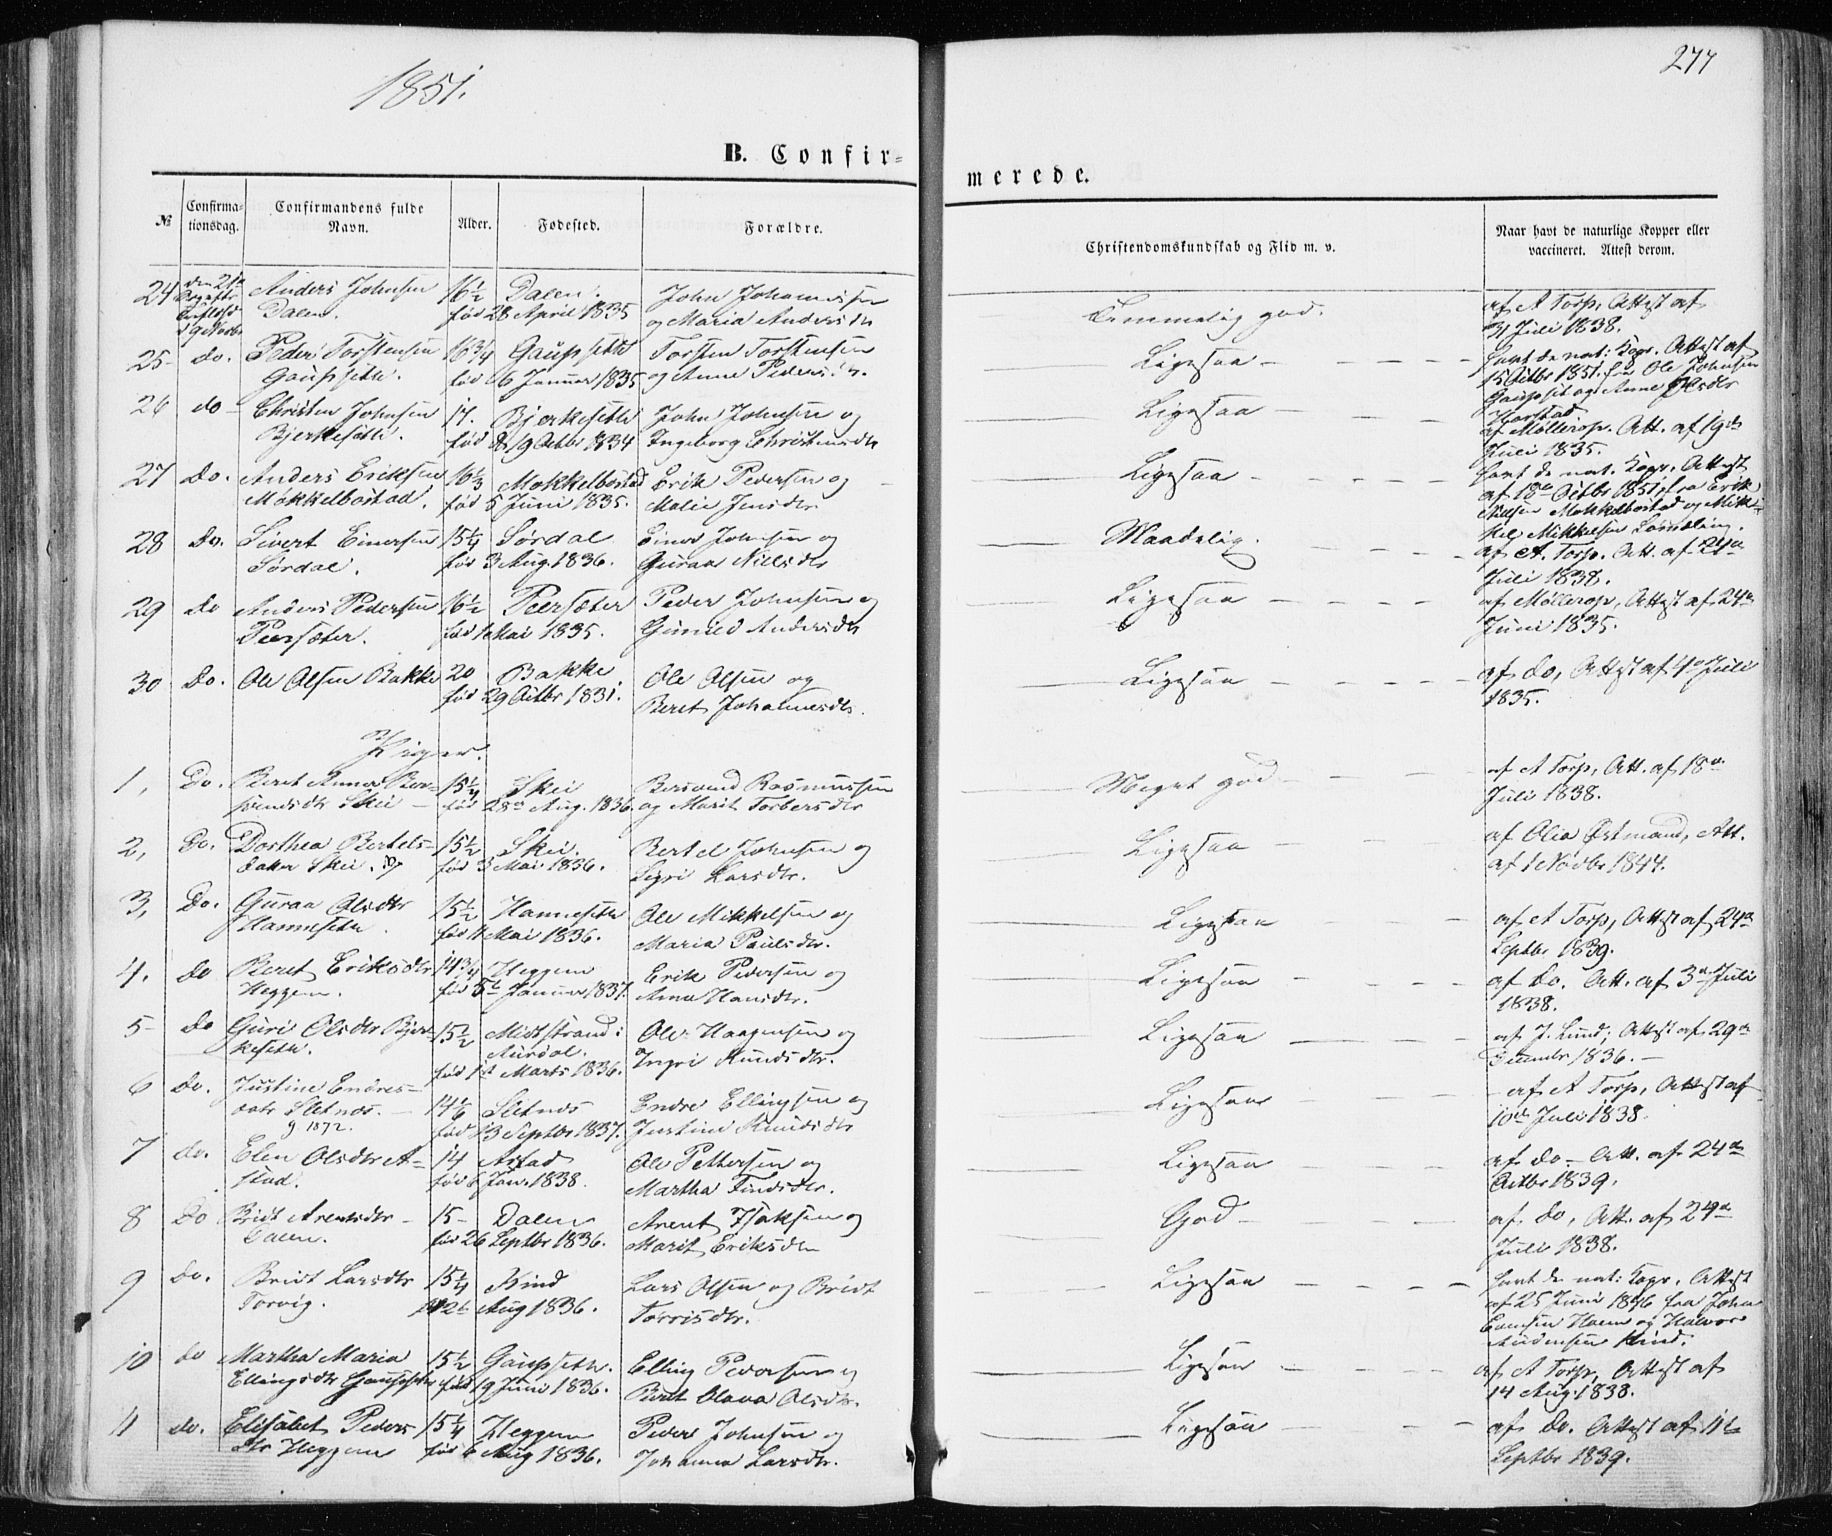 1851.
277
B. Confir-
merede.
№
Confirma-
tionsdag.
Confirmandens fulde
Navn.
Alder.
Fødested.
Forældre.
Christendomskundskab og Flid m. v.
Naar havt de naturlige Kopper eller
vaccineret. Attest derom.
24 Anders Johnsen 16½ Dalen. John Johannessen
Dalen. fød 28 April 1835 og Maria Andersdtr
Temmelig god. af A Torp, Attest af
Juli 1838.
25 do. Peder Torstensen 16¾ Gaupsetti Torsten Torstensen
Gaupsetti. fød 6 Januar 1835 og Anne Pedersdtr.
Ligesaa havt de nat: Kopr. Attest af
15 Octbr 1851 fra Ole Johnsen
Gaupset og Anne Olsdtr
Harstad.
26 do Christen Johnsen 17. Bjerkesetti John Johnsen og
Bjerkesetti. fød d. 19 Octbr 1834 Ingeborg Christensdtr
Ligesaa af Møllerop. Att. af 19de
Juli 1835.
27 Do. Anders Eriksen 16⅓ Mokkelbostad Erik Pedersen og
Mokkelbostad. fød 5 Juni 1835. Malie Jensdtr
Ligesaa havt de nat. Kopr. Attest
af 18de Octbr 1851 fra Erik
Nilsen Mokkelbostad og Mik-
kel Mikkelsen
28 Do. Sivert Einersen 15¼ Sørdal Einer Johnsen og
Sørdal. fød 3 Aug. 1836. Guraa Nilsdtr
Maadelig. af A. Torp. Att. af 24de
Juli 1838.
29 do Anders Pedersen 16½ Peersæter Peder Johnsen og
Peersæter. fød 1 Mai 1835. Gunild Andersdtr
Ligesaa af Møllerop, Attest af 24de
Juni 1835.
30 Do. Ole Olsen Bakke 20 Bakke Ole Olsen og
fød 29 Octbr 1831. Beret Johannesdtr.
Ligesaa af do, Attest af 4de Juli
1835.
Piger.
1, Do. Beret Anna Ber- 15¼ Skei Bersvend Rasmussen
svendsdtr Skei fød 28de Aug. 1836. og Marit Torbersdtr
Meget god af A Torp, Att. af 18de
Juli 1838.
2, Do. Dorthea Bertels- 15½ Skei. Bertel Johnsen og
datter Skei. fød 3 Mai 1836. Sigri Larsdtr.
Ligesaa af Olia Østmand, Att.
af 1 Novbr 1844.
3, Do. Guraa Olsdtr 15½ Hannesetr Ole Mikkelsen og
Hannesetr. fød 11 Mai 1836. Maria Paulsdtr.
Ligesaa af A Torp, Attest af 24de
Septbr 1839.
4. do Beret Eriksdtr 14¾ Heggem Erik Pedersen og
Heggem. fød 5te Januar 1837. Anna Hansdtr.
Ligesaa af Do. Att. af 3de Juli
1838.
5 do Guri Olsdtr Bjer- 15½ Midtstrand i Ole Haagensen og
kesetr. Aurdal. Ingri Knudsdtr.
fød 1st Marts 1836.
Ligesaa af J. Lund; Attest af 29de
Decembr 1836.
6 Do. Justine Endres- 14⅙ Sletnæs Endre Ellingsen og
datr Sletnæs. fød 13 Septbr 1837. Justine Knudsdtr
g 1872.
Ligesaa af A Torp, Attest af
10de Juli 1838.
7 do. Elen Olsdtr A- 14 Astad Ole Pettersen og
stad. fød 6 Janr. 1838. Martha Findsdtr.
Ligesaa af do Att. af 24de
Octbr 1839.
8 Do Bridt Arentsdtr 15 Dalen Arent Isaksen og
Dalen. fød 26 Septbr 1836. Marit Eriksdtr
God af do, Att. af 24de
Juli 1838.
9 Do. Bridt Larsdtr 15¼ Hind Lars Olsen og Bridt
Torvig. Aug 1836. Torrisdtr.
Ligesaa havt de nat: Kopr. Attest
af 25 Juni 1846 fra John
og Halvor
10 do Martha Maria 15½ Gaupsetr. Elling Pedersen og
Ellingsdtr Gaupsetr fød 19 Juni 1836. Berit Olava Olsdtr.
Ligesaa af A Torp, Attest af
14 Aug. 1838.
11 do. Elisabet Peders- 15¼ Heggem Peder Johnsen og
dtr Heggem fød 6 Aug 1836. Johanna Larsdtr.
Ligesaa af Do. Attest af 11te
Septbr 1839.